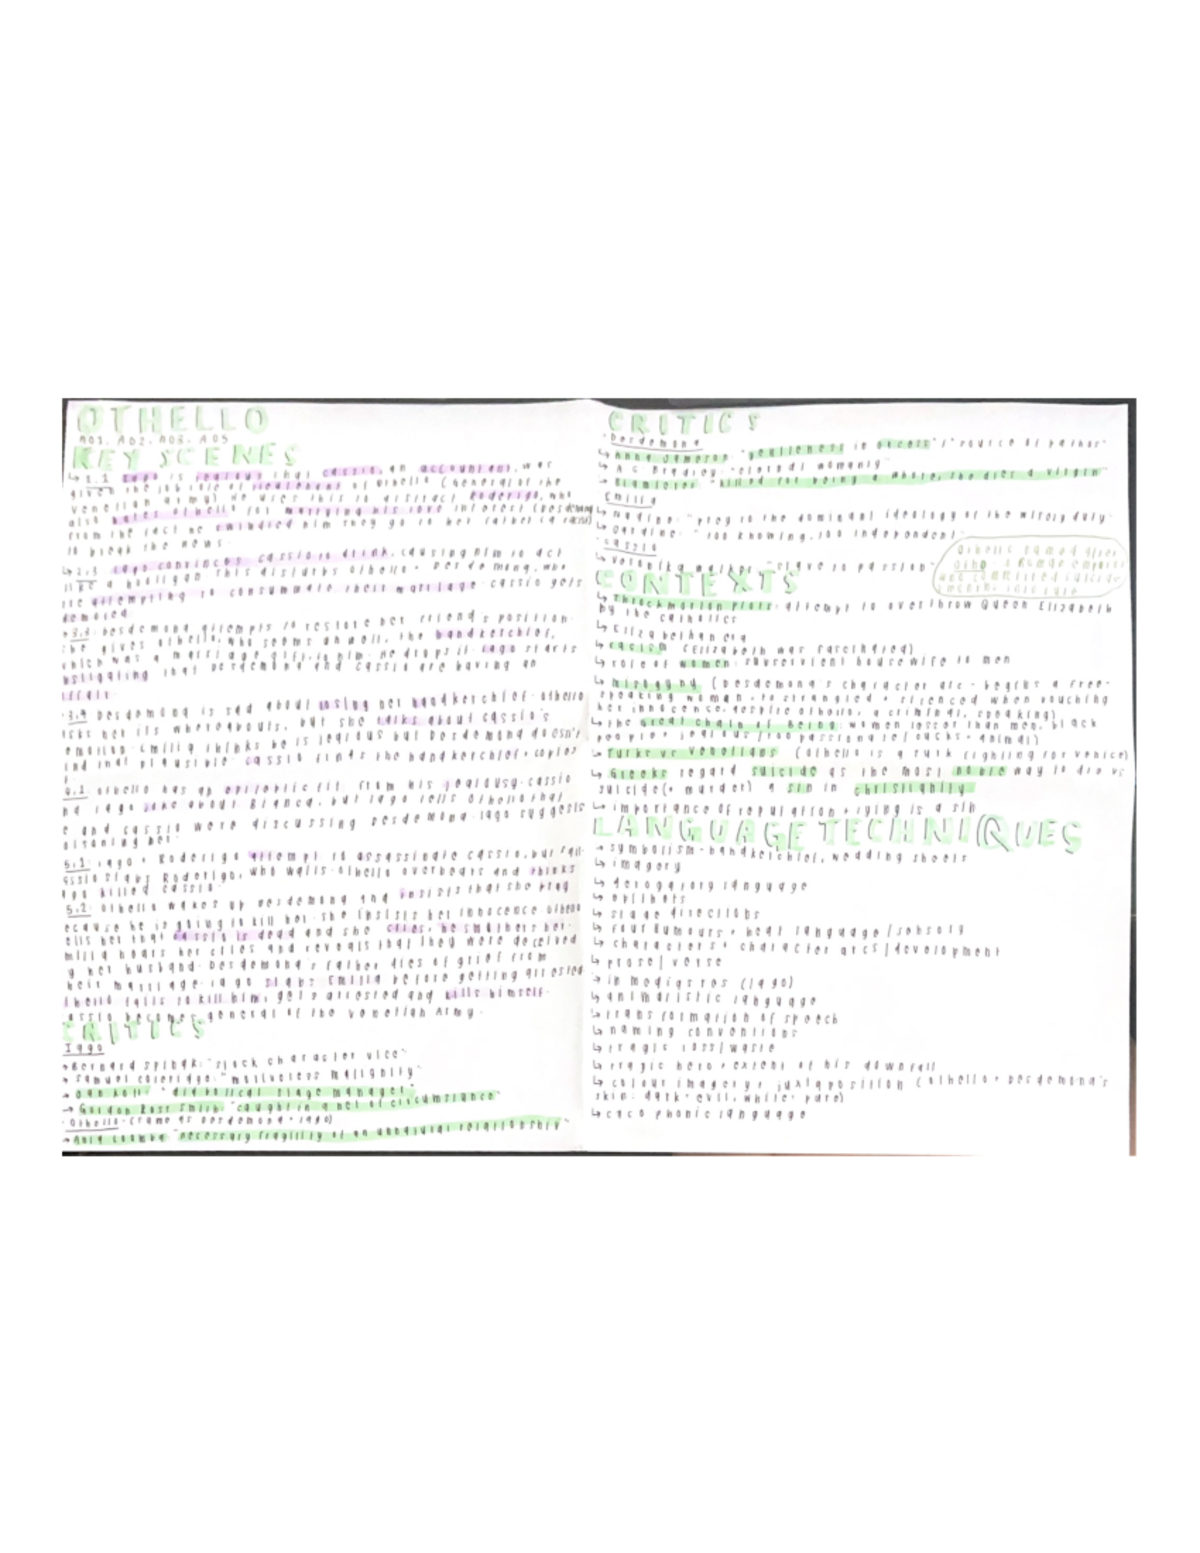 OTHELLO
A01, A02, A03, A05
KEY SCENES
↳ 1.1 Iago is jealous that cassio, an accountant, was
given the job role of lieutenant of Othello (General of the
Venetian Army). He uses this to distract Roderigo, who
also hates Othello for marrying his love interest (Desdemona)
from the fact he swindled him. They go to her father (a racist)
to break the news.
↳ 2.3 iago convinces cassio to drink, causing him to act
like a hooligan. This disturbs othello + Desdemona, who
are attempting to consummate their marriage. cassio gets
demoted.
3.3 Desdemona attempts to restore her friend's position.
she gives othello, who seems unwell, the handkerchief,
which was a marriage gift to him. He drops it. iago starts
that Desdemona and cassio are having an
affair.
3.4 Desdemona is sad about losing her handkerchief. Othello
asks her its whereabouts, but she talks about cassio's
Emilia thinks he is jealous but Desdemona doesn't
find that plausible. cassio finds the handkerchief + copies
4.1 othello has an epileptic fit from his jealousy. cassio
and iago joke about Bianca, but iago tells Othello that
he and cassio were discussing Desdemona. iago suggests
poisoning her.
5.1 iago + Roderigo attempt to assassinate cassio, but fail.
cassio stabs Roderigo, who wails. othello overhears and thinks
iago killed cassio.
5.2 othello wakes up Desdemona and insists that she pray
because he is going to kill her. she insists her innocence. othello
tells her that cassio is dead and she cries, he smothers her.
Emilia hears her cries and reveals that they were deceived
by her husband. Desdemona's father dies of grief from
their marriage. iago stabs Emilia before getting arrested.
Othello fails to kill him, gets arrested and kills himself.
cassio becomes general of the Venetian Army.
CRITICS
Iago
Bernard Spivak: "stock character vice"
Samuel coleridge: "motiveless malignity"
"diabolical stage manager"
Gordon Ross Smith: "caught in a net of circumstance"
Othello (same as Desdemona + iago)
Ania Loomba: "necessary fragility of an unnatural relationship"
CRITICS
Desdemona
↳ Anna Jameson: "gentleness in excess" / "source of pathos"
↳ A C Bradley: "eternal womanly"
"killed for being a whore, she dies a virgin"
Emilia
↳ Nadine: "prey to the dominant ideology of the wifely duty"
↳ Jardine: "too knowing, too independent"
cassio
Veronika Walker: "slave to passion"
Othello named after
Otho - a Roman emperor
who committed suicide
CONTEXTS
↳ Throckmorton Plot: attempt to overthrow Queen Elizabeth
by the catholics
↳ Elizabethan era
↳ racism (Elizabeth was fascinated)
↳ role of women: subservient housewife to men
↳ misogyny (Desdemona's character arc - begins a free-
speaking woman → strangled + silenced when vouching
her innocence, despite othello, a criminal, speaking)
↳ the Great chain of Being: women lesser than men, black
people = jealous / too passionate / animal)
↳ Turks vs Venetians (Othello is a Turk fighting for Venice)
↳ Greeks regard suicide as the most noble way to die vs
suicide (+ murder) a sin in christianity
↳ importance of reputation + lying is a sin
LANGUAGE TECHNIQUES
↳ symbolism - handkerchief, wedding sheets
↳ imagery
↳ derogatory language
↳ epithets
↳ stage directions
↳ four humours + heat language / sensory
↳ characters + character arcs / development
↳ prose / verse
↳ in medias res (iago)
↳ animalistic language
↳ transformation of speech
↳ naming conventions
↳ tragic loss/waste
↳ tragic hero + extent of his downfall
↳ colour imagery + juxtaposition (Othello + Desdemona's
skin: dark = evil, white = pure)
↳ cacophonic language